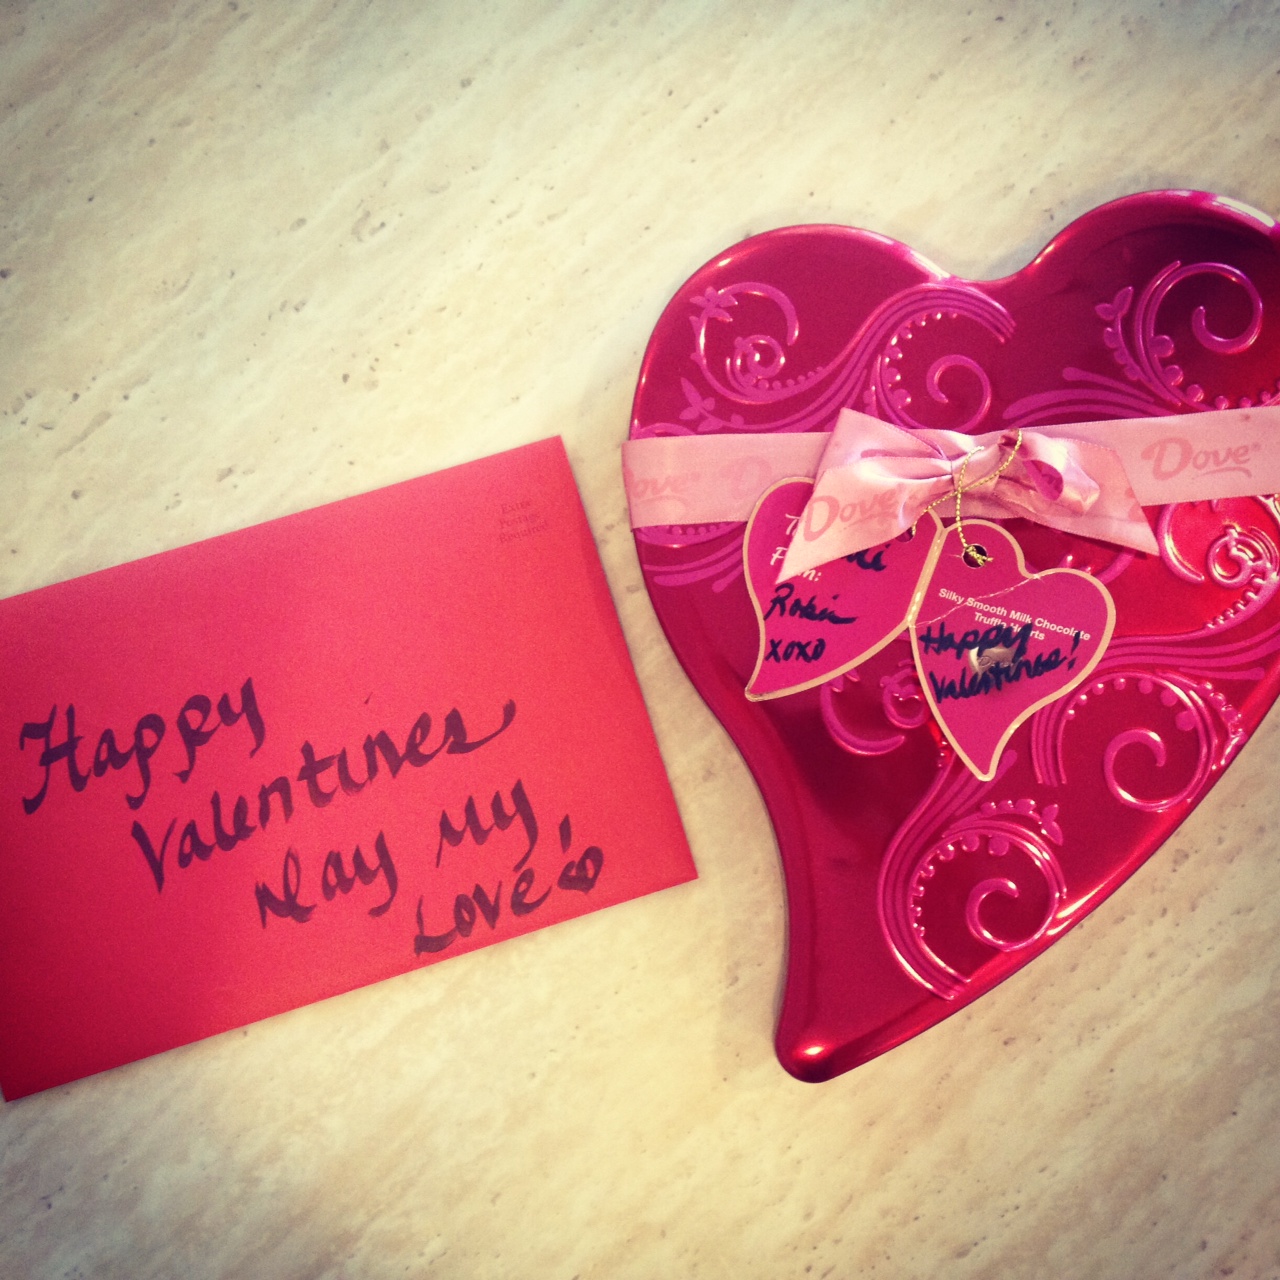 Extra
Postage
Required
Happy
Valentines
Day My
Love!
Dove
Dove
Dove
Dove
From:
Robin
xoxo
Silky Smooth Milk Chocolate
Truffle Hearts
Happy
Valentines!